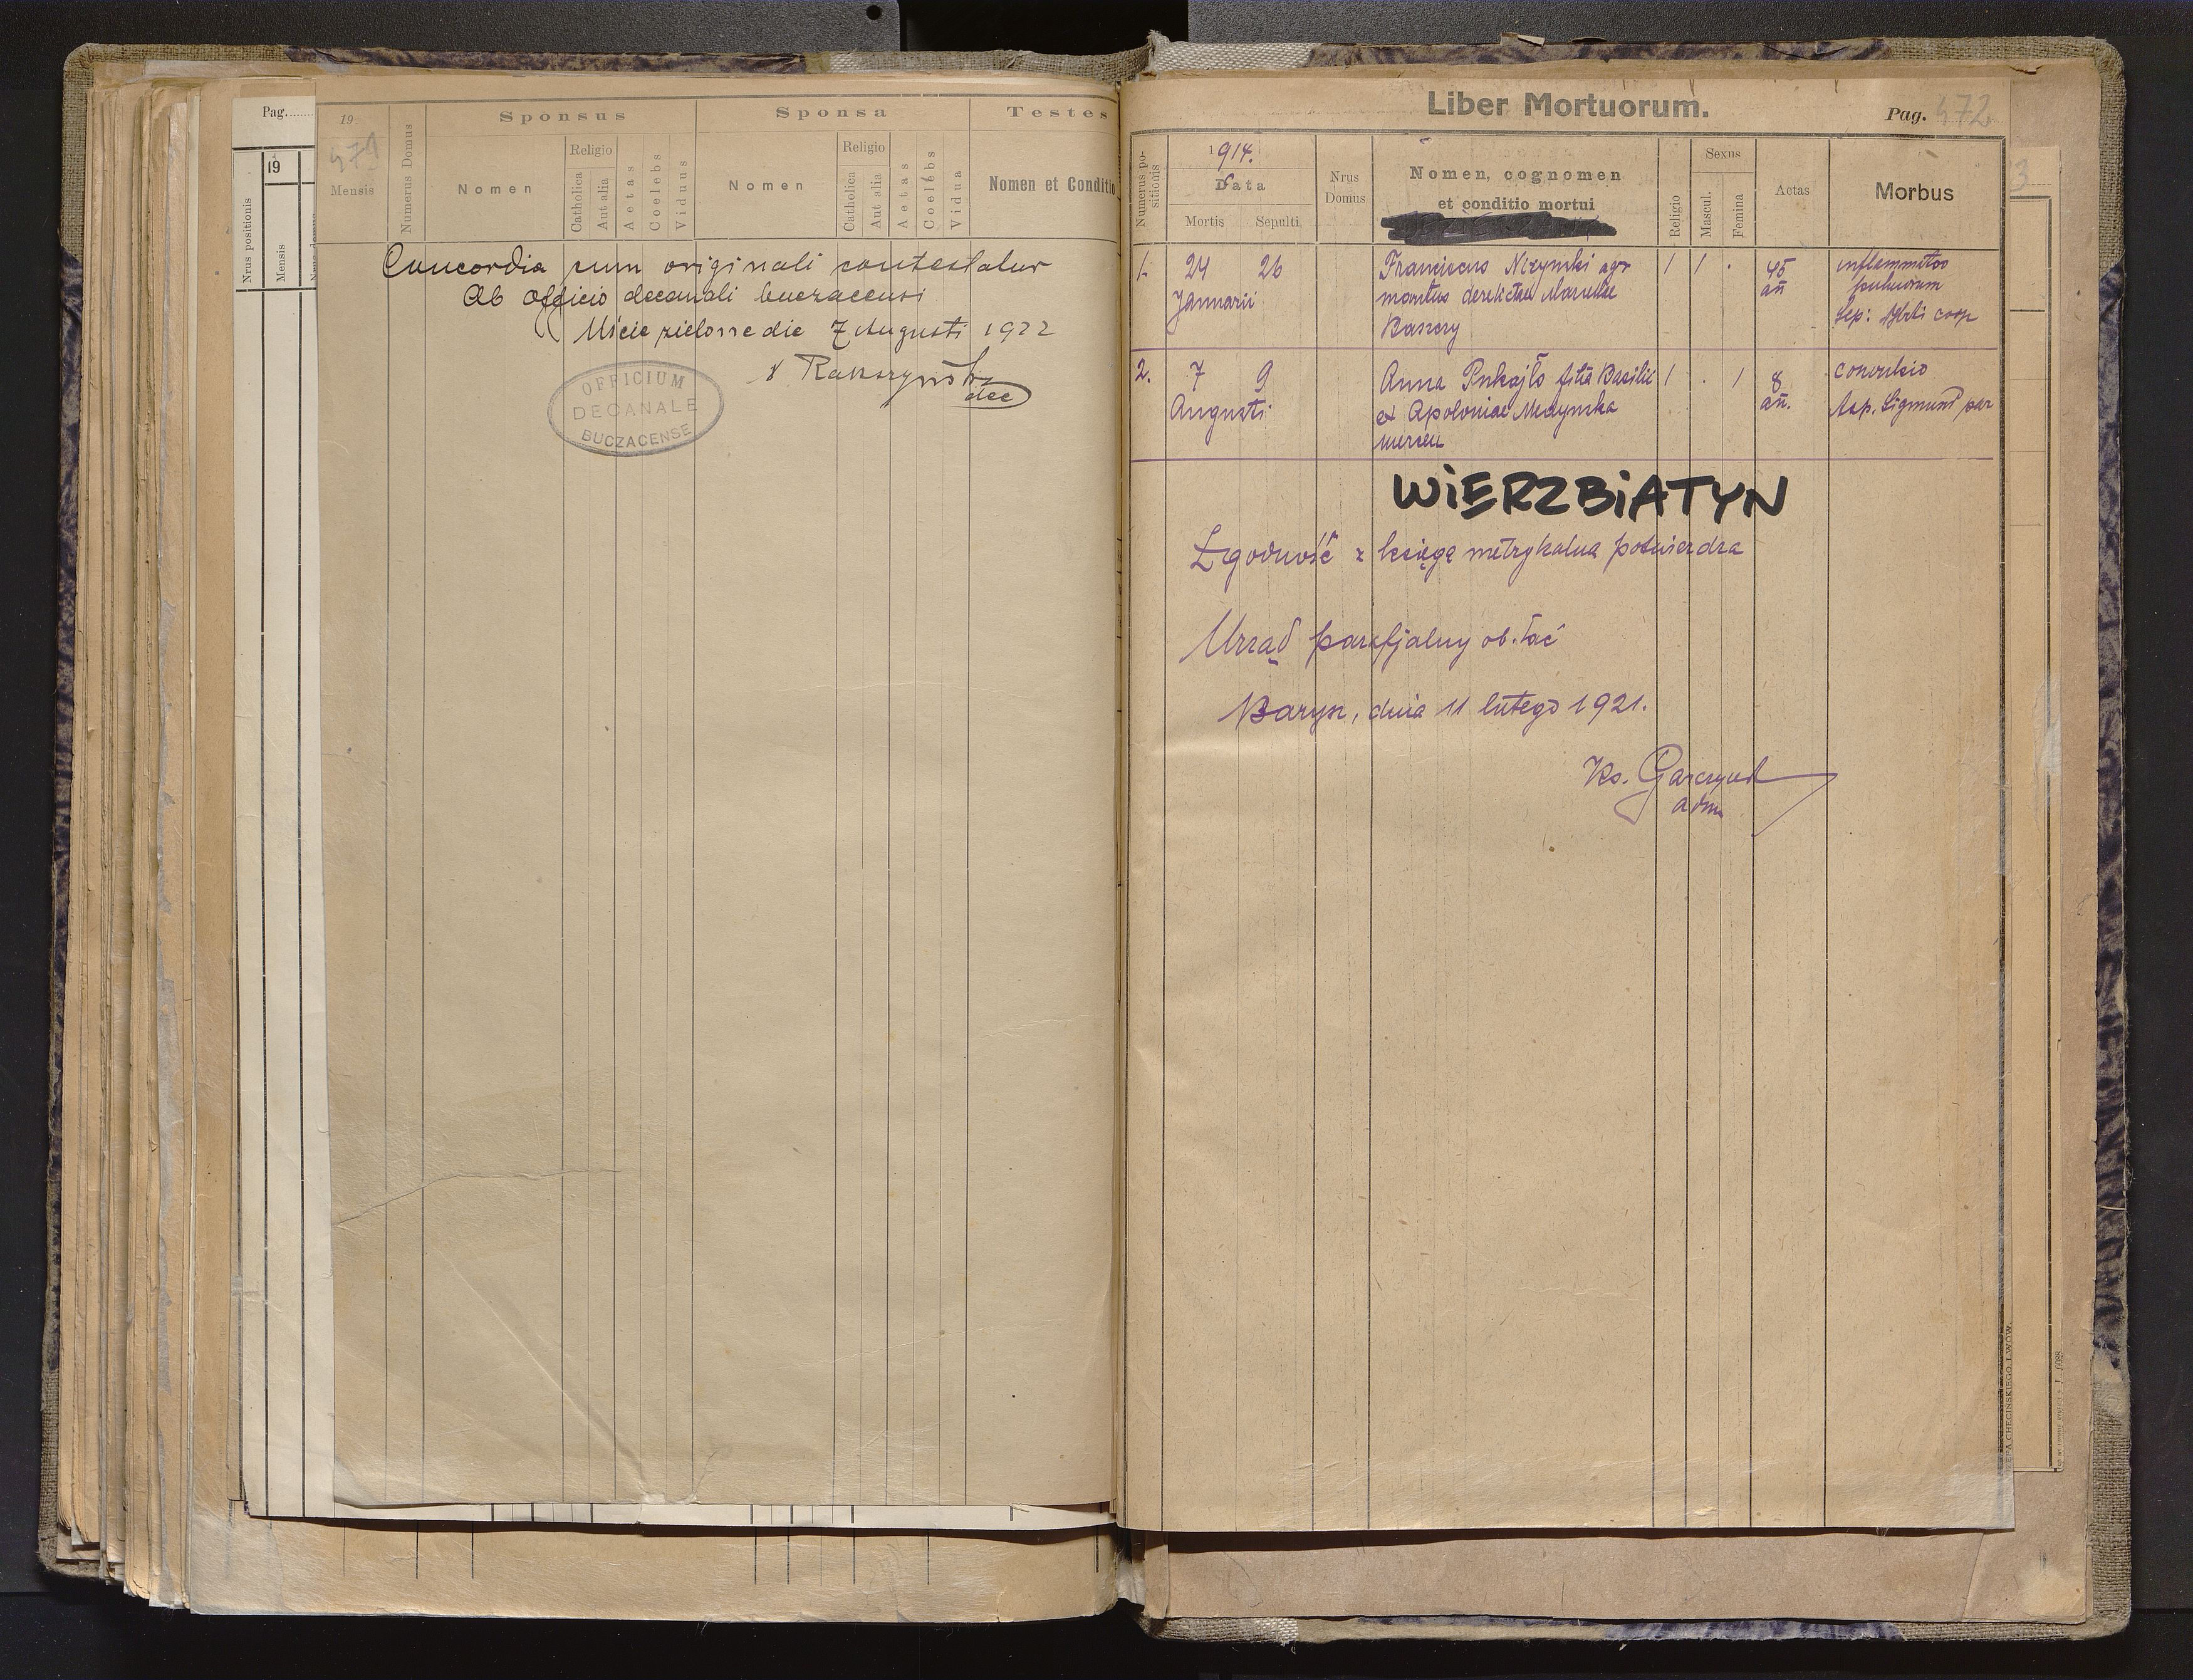 Pag.
19
Nrus positionis
Mensis
19
471
Mensis
Numerus Domus
Sponsus
Nomen
Religio
Catholica
Aut alia
Aetas
Coelebs
Viduus
Sponsa
Nomen
Religio
Catholica
Aut alia
Aetas
Coelebs
Vidua
Testes
Nomen et Conditio
Concordia cum originali contestatur
Ab officio decanali buczacensi
Uście zielone die 7 Augusti 1922
dec
OFFICIUM
DECANALE
BUCZACENSE
Liber Mortuorum.
Pag. 472
Numerus po-
sitionis
1914.
Data
Mortis
Sepulti
Nrus
Domus
Nomen, cognomen
et conditio mortui
Religio
Sexus
Mascul.
Femina
Aetas
Morbus
1. 24 26 Franciscus Nizynski agr / / . 45 inflammatio
Januarii maritus derelictae an pulmorum
Sep: coop
2. 7 9 Anna Pukajło filia Basilii / . / 8 convulsio
Augusti et Apoloniae an. Sep. Sigmund par
WiERZBiATYN
Zgodność z księgą metrykalną potwierdza
Urząd parafjalny ob. łać
Barysz, dnia 11 lutego 1921.
Ks.
adm
3